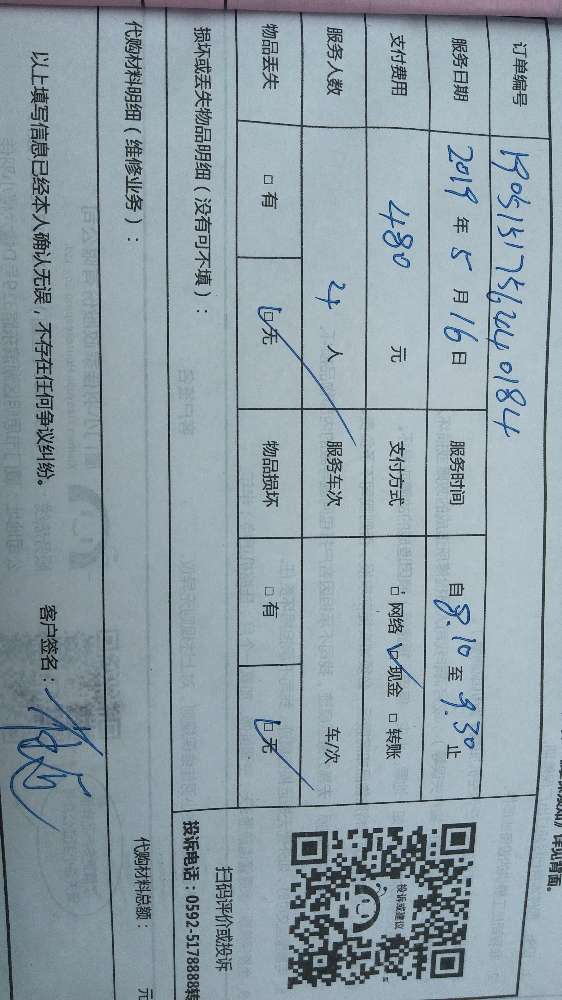 详见背面。
订单编号 19051517562440184
服务日期 2019 年 5 月 16 日 服务时间 自 8.10 至 9.30 止
支付费用 480 元 支付方式 □ 网络 ☑ 现金 □ 转账
服务人数 4 人 服务车次 车/次
物品丢失 □ 有 ☑ 无 物品损坏 □ 有 ☑ 无
损坏或丢失物品明细（没有可不填）：
投诉或建议
扫码评价或投诉
投诉电话：0592-5178888转
代购材料明细（维修业务）：
代购材料总额： 元
以上填写信息已经本人确认无误，不存在任何争议纠纷。 客户签名：